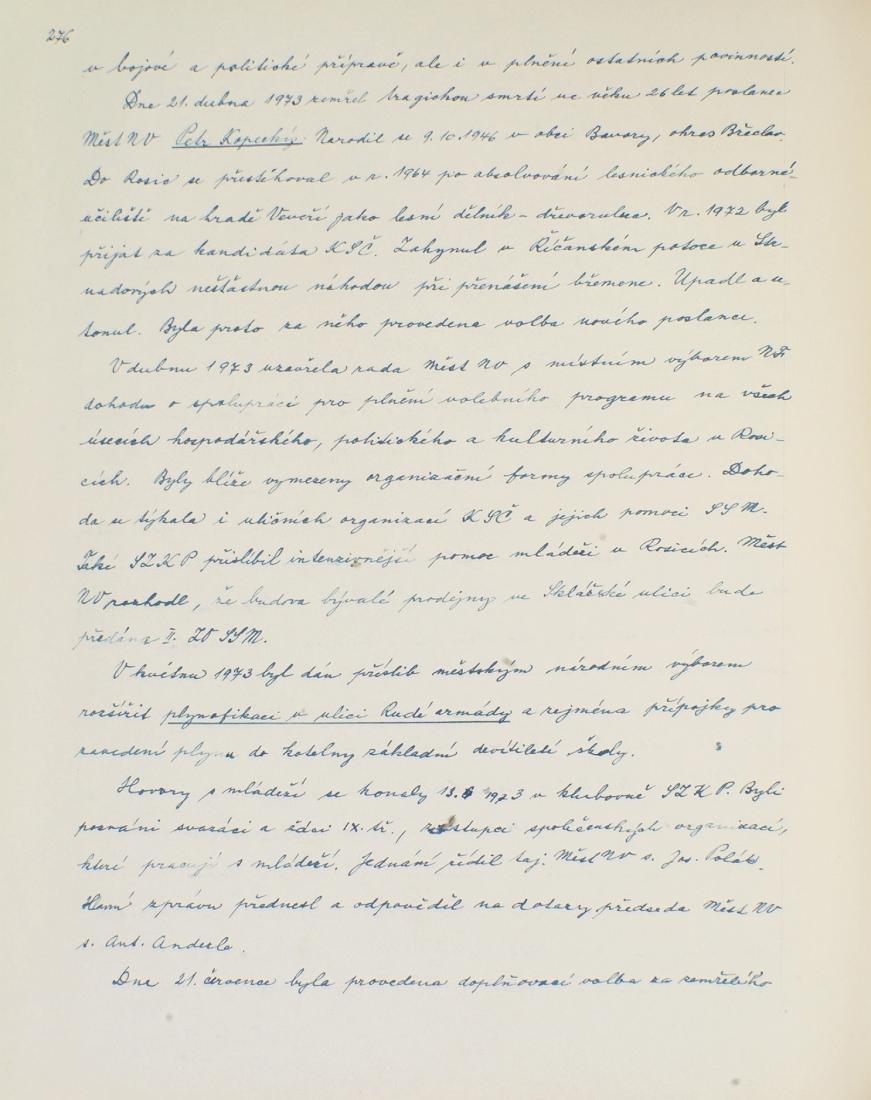 276
v bojové a politické přípravě, ale i v plnění ostatních povinností.
Dne 21. dubna 1973 zemřel tragickou smrtí ve věku 26 let poslanec
Měst NV Petr Kopecký. Narodil se 9.10.1946 v obci Bavory, okres Břeclav.
Do Rosic se přistěhoval v r. 1964 po absolvování lesnického odborné-
učiliště na hradě Veveří jako lesní dělník - dřevorubec. V r. 1972 byl
přijat za kandidáta KSČ. Zahynul v Říčanském potoce u Str-
nadových nešťastnou náhodou při přenášení břemene. Upadl a u-
tonul. Byla proto za něho provedena volba nového poslance.
V dubnu 1973 uzavřela rada Měst NV s místním výborem NF
dohodu o spolupráci pro plnění volebního programu na všech
úsecích hospodářského, politického a kulturního života v Rosi-
cích. Byly blíže vymezeny organizační formy spolupráce. Doho-
da se týkala i uličních organizací KSČ a jejich pomoci SSM.
Také SZKP přislíbil intenzivnější pomoc mládeži v Rosicích. Měst
NV rozhodl, že budova bývalé prodejny ve Sklářské ulici bude
předána II. ZO SSM.
V květnu 1973 byl dán příslib městským národním výborem
rozšířit plynofikaci v ulici Rudé armády a zejména přípojky pro
zavedení plynu do kotelny základní devítileté školy.
Hovory s mládeží se konaly 13. 1973 v klubovně SZKP. Byli
pozváni svazáci a žáci IX. tř., zástupci společenských organizací,
kteří pracují s mládeží. Jednání řídil taj. Měst NV s. Jos. Polák.
Hlavní zprávu přednesl a odpověděl na dotazy předseda Měst NV
s. Ant. Anderle.
Dne 21. července byla provedena doplňovací volba za zemřelého